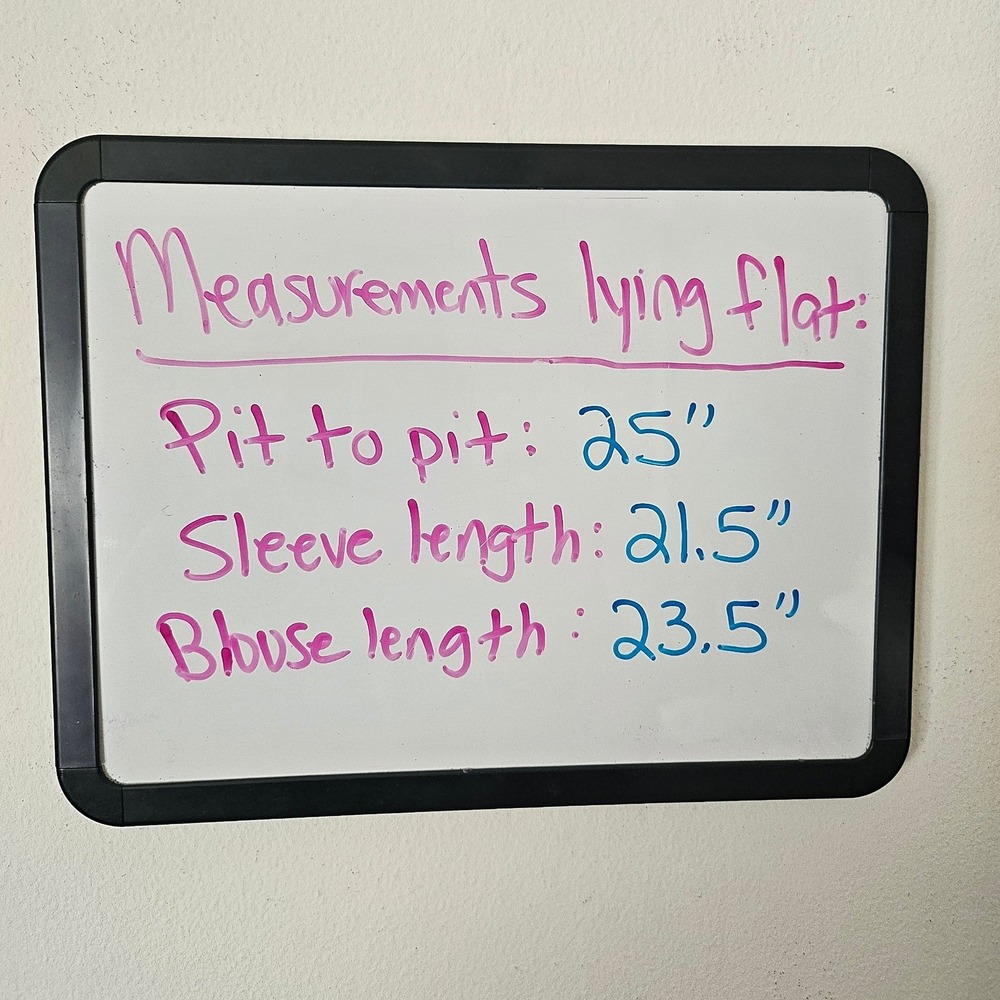 Measurements lying flat:
Pit to pit: 25"
Sleeve length: 21.5"
Blouse length: 23.5"